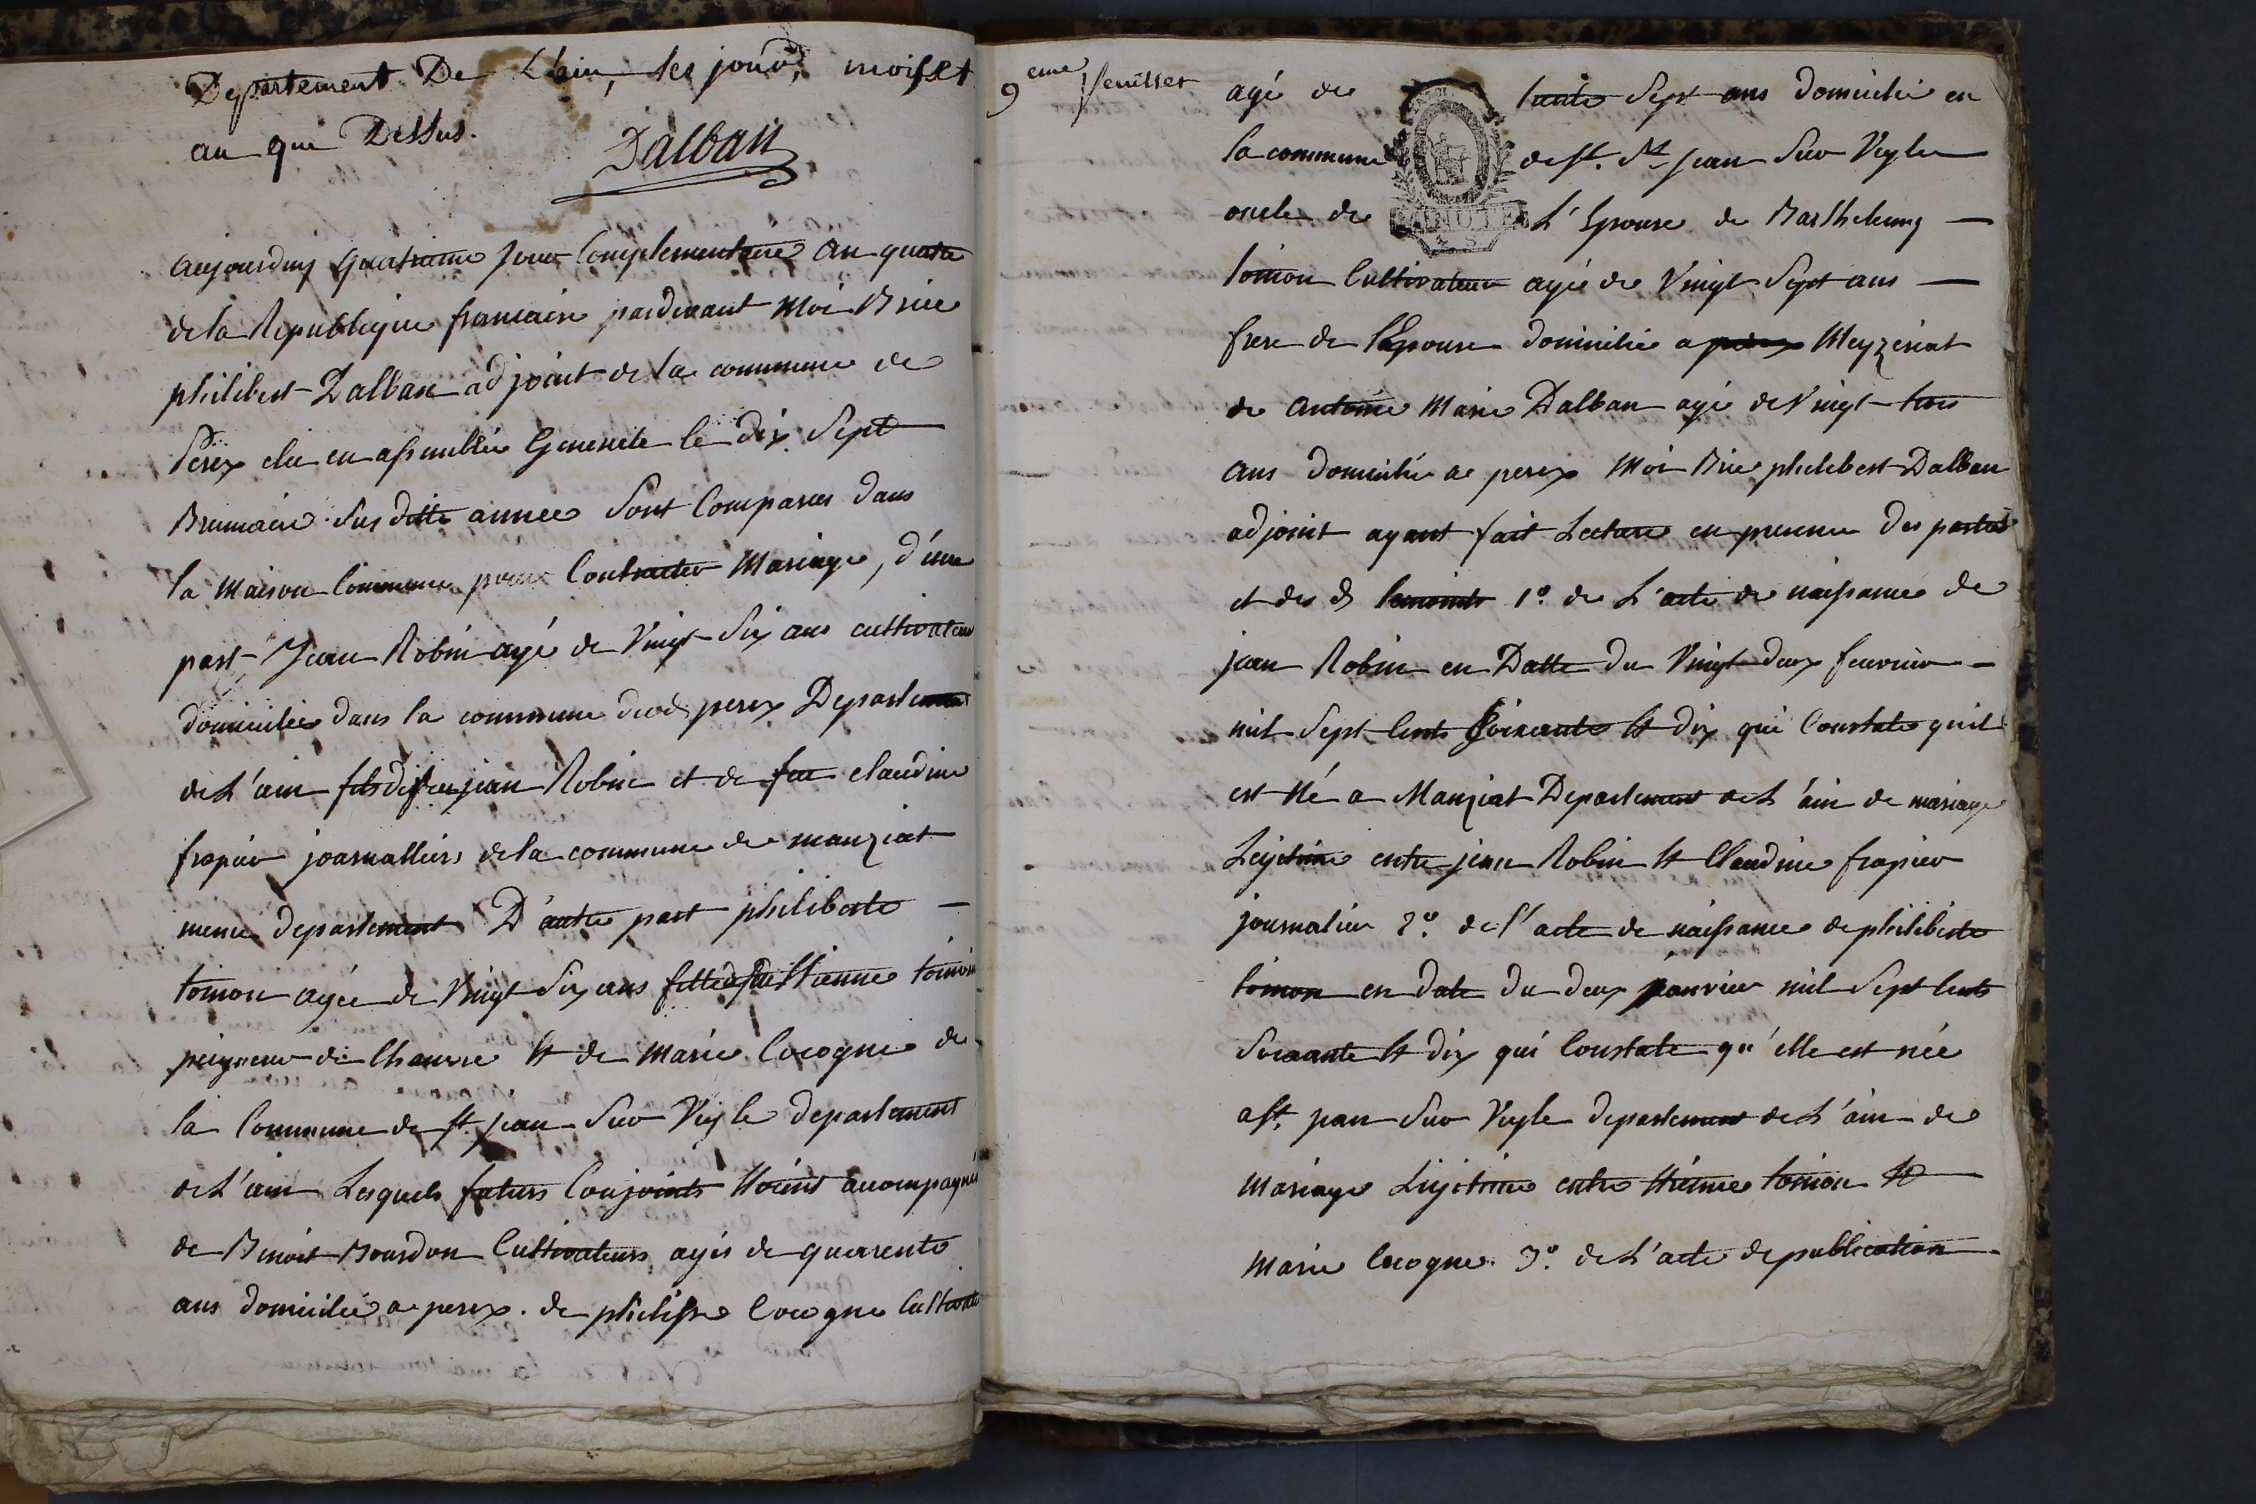 Departement De L'ain, les jour, mois et
an que Dessus.
Dalban
aujourduy quatrieme jour Complementaire an quatre
de la Republique francaise pardevant moi Brice
philibert Dalban adjoint de la commune de
Perex elu en assemblée Generale le dix Sept
Brumaire susditte année Sont Comparus dans
la maison Commune pour Contracter Mariage, d'une
part Jean Robin agé de Vingt Six ans cultivateur
domicilié dans la commune de perex Departement
de L'ain fils de feu jean Robin et de feue claudine
fropier journalliers de la commune de manziat
meme departement D'autre part philiberte —
toinon agée de Vingt Six ans fille de Etienne toinon
peigneur de Chanvre Et de Marie Cocogne de
la Commune de St. Jean Sur Veyle departement
de L'ain Lesquels futurs Conjoints Etoient acompagnés
de Benoit Bourdon Cultivateurs agés de quarente
ans domicilié a perex. de philippe Cocogne Cultivateur
9eme feuillet
agé de trente Sept ans domicilié en
la commune de St. Jean Sur Veyle
oncle de L'Epouse de Barthelemy —
toinon Cultivateur agé de Vingt Sept ans —
frere de l'Epouse domicilié a Meyzeriat
de Antoine Marie Dalban agé de Vingt trois
ans domicilié a perex Moi Brice philibert Dalban
adjoint ayant fait Lecture en presence des parties
et des d temoints 1º. de L'acte de naissance de
jean Robin en Datte du Vingt deux fevrier —
mil Sept Cents Soixante Et dix qui Constate quil
est Né a Manziat Departement de L'ain de mariage
Legitime entre jean Robin Et Claudine fropier
journalier 2º. de l'acte de naissance de philiberte
toinon en date du deux janvier mil Sept Cents
Soixante Et dix qui Constate qu'elle est née
a St. jean Sur Veyle departement de L'ain de
Mariage Legitime entre Etienne toinon Et —
Marie Cocogne. 3º. de L'acte de publication
MINUTE